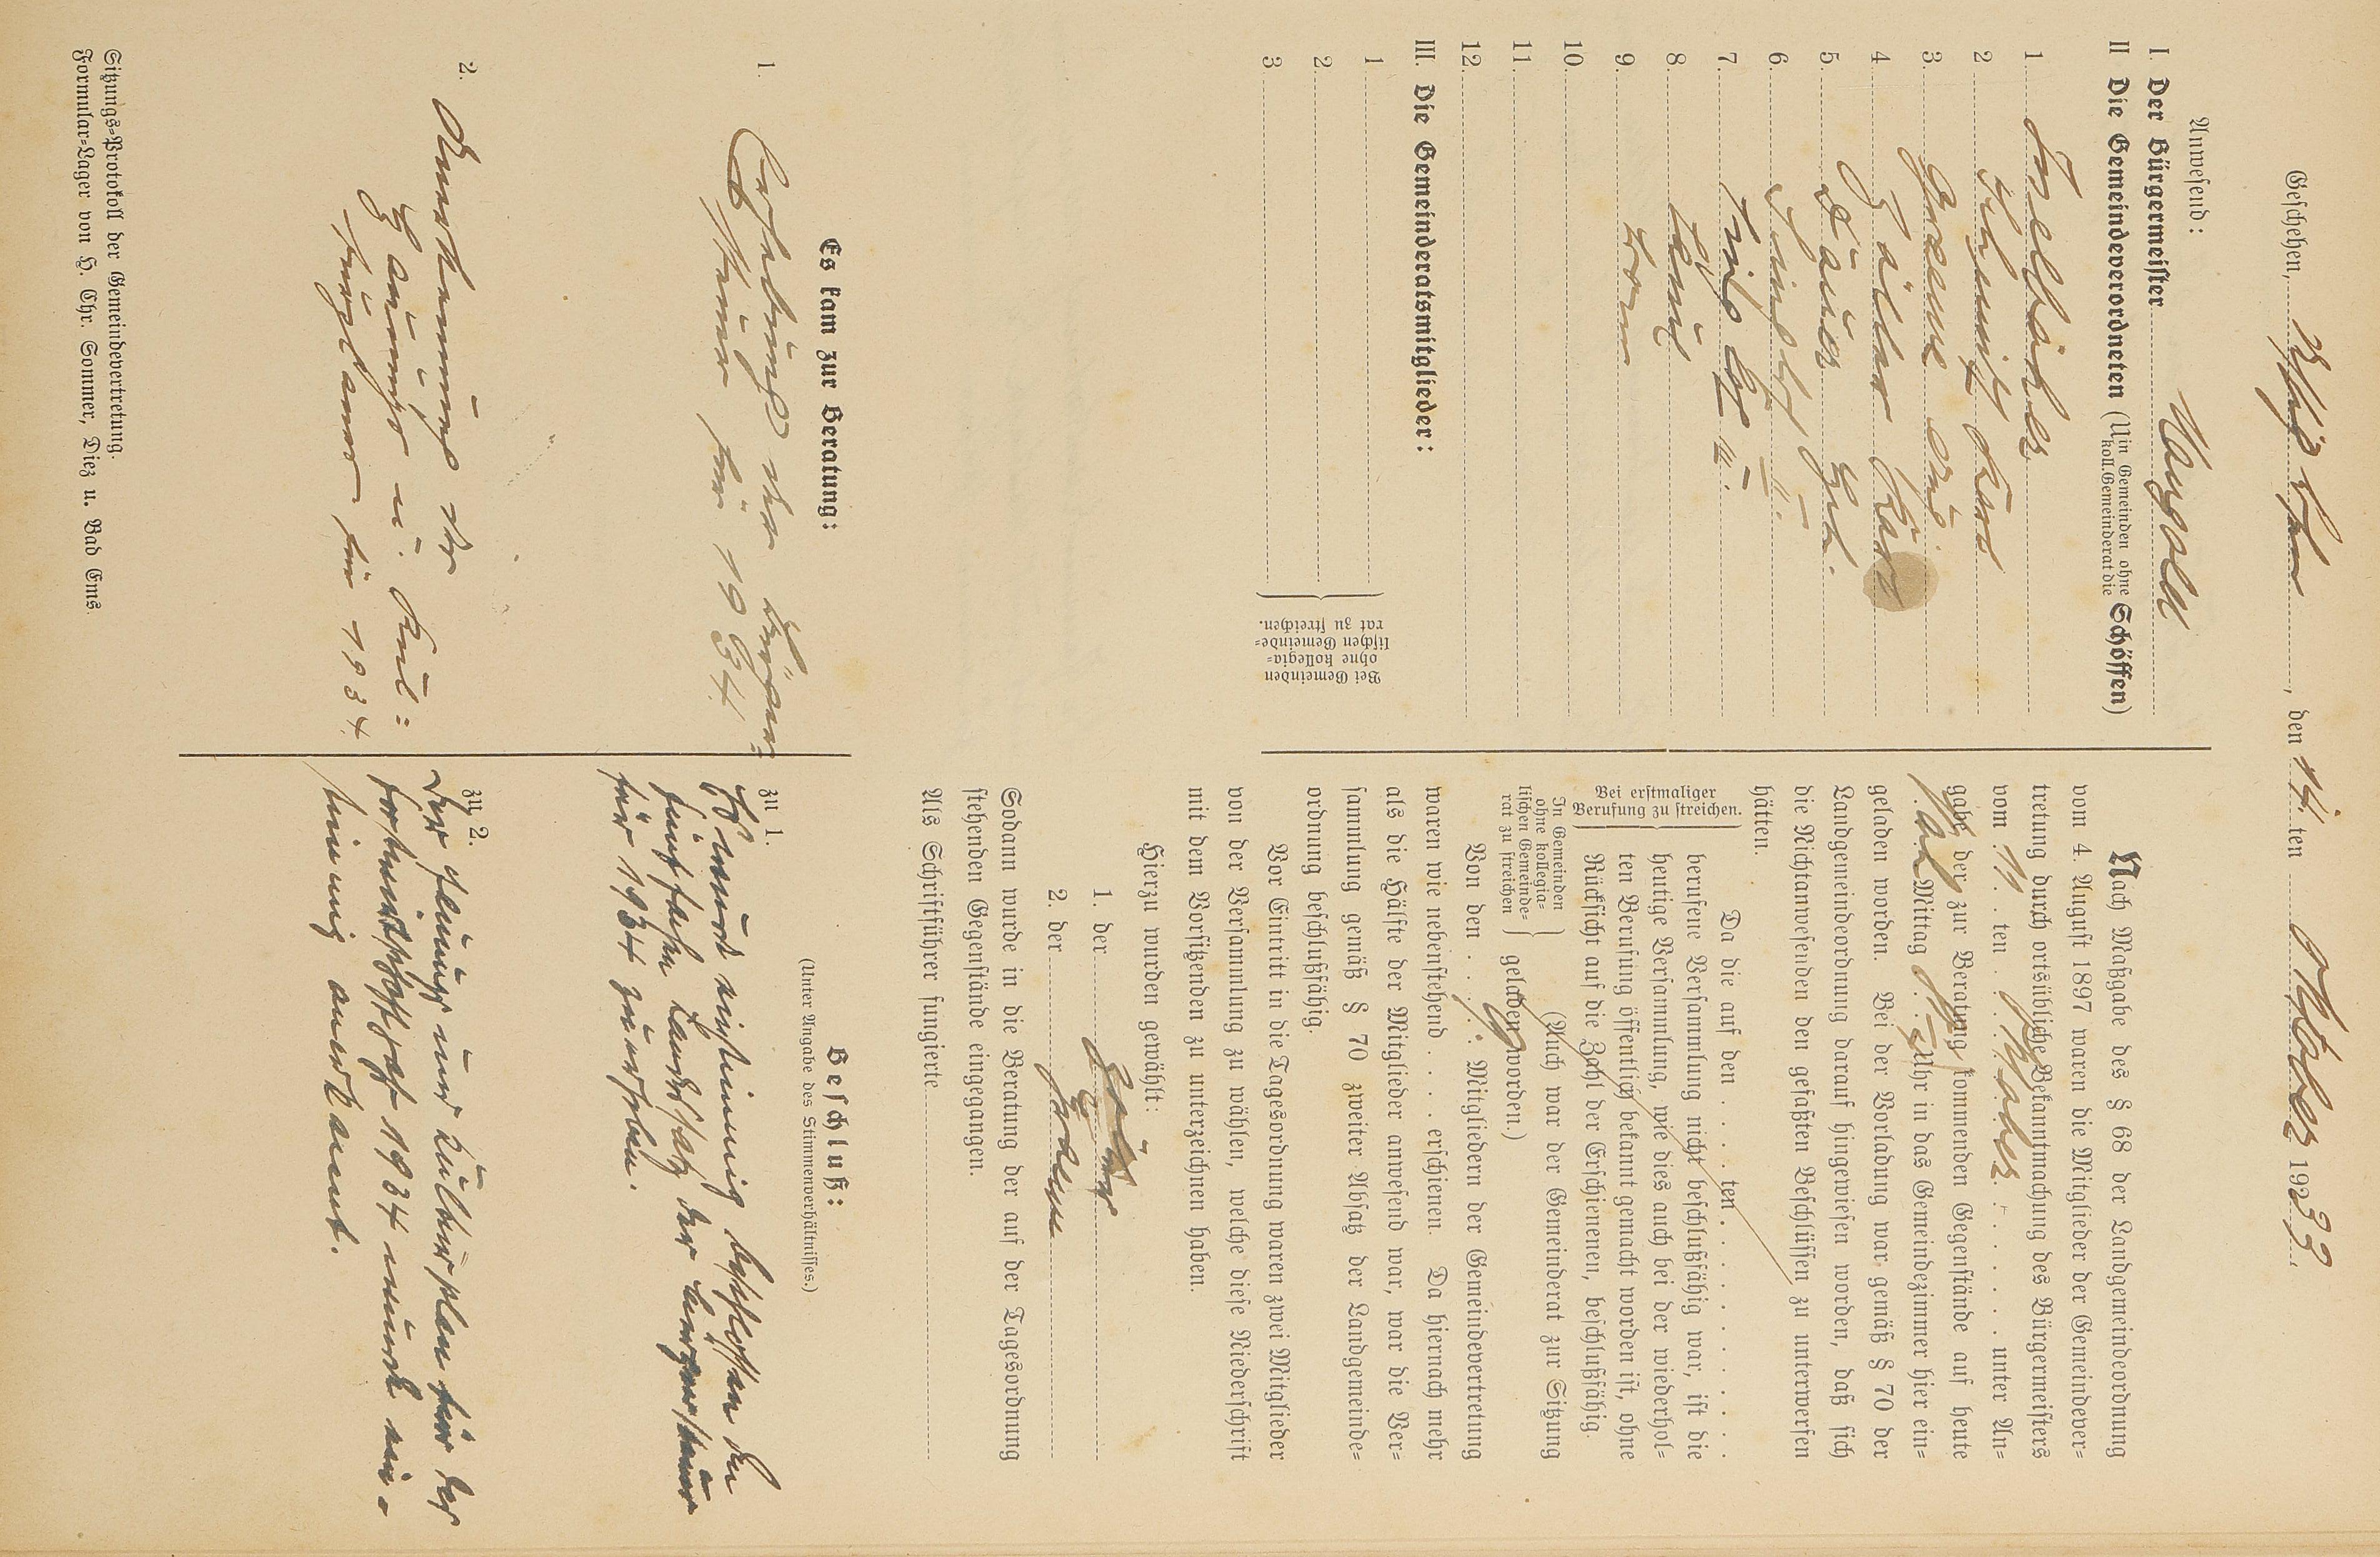 Geschehen, , den 14 ten Oktober 1933.
Anwesend:
I. Der Bürgermeister Mangold
II Die Gemeindeverordneten (in Gemeinden ohne koll. Gemeinderat die Schöffen)
1
2 Schmidt Karl
3.
4
5.
6.
7.
8.
9. Korn
10.
11.
12.
III. Die Gemeinderatsmitglieder:
1
2
3
Bei Gemeinden
ohne kollegia-
lischen Gemeinde-
rat zu streichen.
Nach Maßgabe des § 68 der Landgemeindeordnung
vom 4. August 1897 waren die Mitglieder der Gemeindever-
tretung durch ortsübliche Bekanntmachung des Bürgermeisters
vom 11. ten Oktober unter An-
gabe der zur Beratung kommenden Gegenstände auf heute
Nach Mittag Uhr in das Gemeindezimmer hier ein-
geladen worden. Bei der Vorladung war gemäß § 70 der
Landgemeindeordnung darauf hingewiesen worden, daß sich
die Nichtanwesenden den gefaßten Beschlüssen zu unterwerfen
hätten.
Bei erstmaliger
Berufung zu streichen.
Da die auf den . . . . ten . . . . . . . . . . . . .
berufene Versammlung nicht beschlußfähig war, ist die
heutige Versammlung, wie dies auch bei der wiederhol-
ten Berufung öffentlich bekannt gemacht worden ist, ohne
Rücksicht auf die Zahl der Erschienenen, beschlußfähig.
In Gemeinden
ohne kollegia-
lischen Gemeinde-
rat zu streichen
(Auch war der Gemeinderat zur Sitzung
geladen worden.)
Von den Mitgliedern der Gemeindevertretung
waren wie nebenstehend . . . . erschienen. Da hiernach mehr
als die Hälfte der Mitglieder anwesend war, war die Ver-
sammlung gemäß § 70 zweiter Absatz der Landgemeinde-
ordnung beschlußfähig.
Vor Eintritt in die Tagesordnung waren zwei Mitglieder
von der Versammlung zu wählen, welche diese Niederschrift
mit dem Vorsitzenden zu unterzeichnen haben.
Hierzu wurden gewählt:
1. der
2. der
Sodann wurde in die Beratung der auf der Tagesordnung
stehenden Gegenstände eingegangen.
Als Schriftführer fungierte
Es kam zur Beratung:
1. Erhebung der Bürger-
steuer für 1934.
2. Anerkennung der
Hauungs- u. Kul-
turpläne für 1934.
Beschluß:
(Unter Angabe des Stimmenverhältnisses.)
zu 1.
Es wurde einstimmig beschlossen den
fünffachen Landessatz der Bürgersteuer
für 1934 zu erheben.
zu 2.
Der Hauungs und Kulturplan für das
Forstwirtschaftsjahr 1934 wurde ein-
stimmig anerkannt.
Sitzungs-Protokoll der Gemeindevertretung.
Formular-Lager von H. Chr. Sommer, Diez u. Bad Ems.